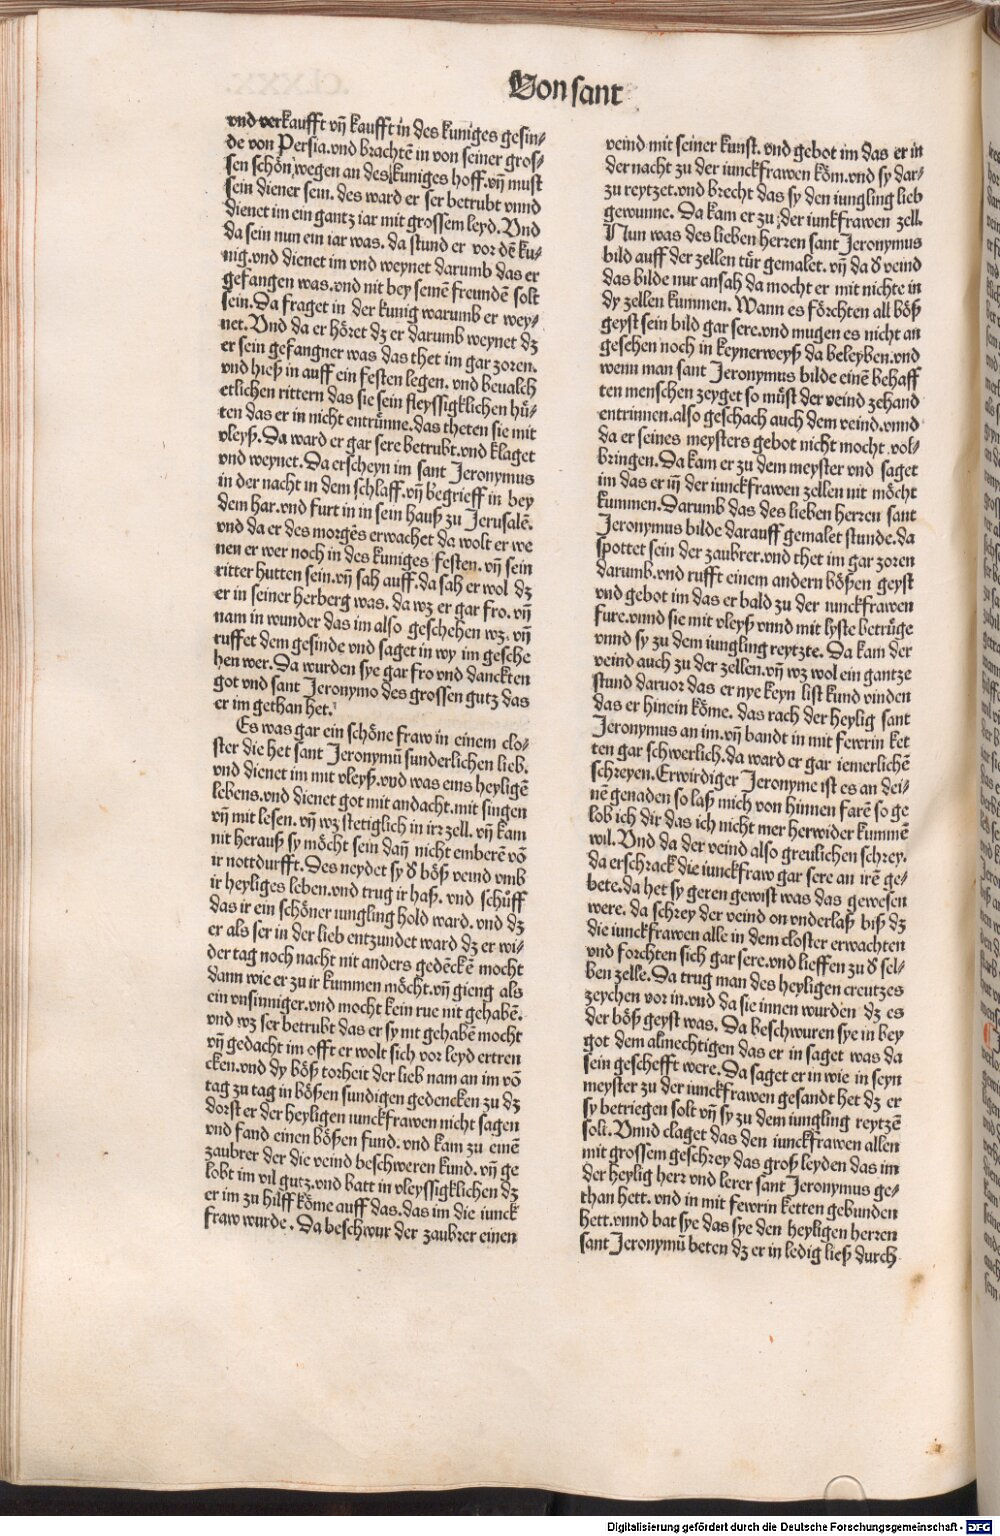 Von sant
vnd verkaufft vn̄ kaufft in des kuniges gesin⸗
de von Persia.vnd brachtē in von seiner gros⸗
sen schön wegen an des kuniges hoff.vn̄ must
sein diener sein. des ward er ser betrubt vnnd
dienet im ein gantz iar mit grossem leyd. Vnd
da sein nun ein iar was. da stund er vor dē ku⸗
nig.vnd dienet im vnd weynet darumb das er
gefangen was.vnd nit bey seinē freundē solt
sein. Da fraget in der kunig warumb er wey⸗
net. Vnd da er höret dz er darumb weynet dz
er sein gefangner was das thet im gar zoren.
vnd hieß in auff ein festen legen. vnd beualch
etlichen rittern das sie sein fleyssigklichen hů⸗
ten das er in nicht entrünne.das theten sie mit
vleyß. Da ward er gar sere betrubt.vnd klaget
vnd weynet. Da erscheyn im sant Jeronymus
in der nacht in dem schlaff.vn̄ begrieff in bey
dem har.vnd furt in in sein hauß zu Jerusalē.
vnd da er des morgēs erwachet da wolt er we
nen er wer noch in des kuniges festen. vn̄ sein
ritter hutten sein.vn̄ sah auff.da sah er wol dz
er in seiner herberg was. da wz er gar fro. vn̄
nam in wunder das im also geschehen wz. vn̄
ruffet dem gesinde vnd saget in wy im gesche
hen wer. Da wurden sye gar fro vnd danckten
got vnd sant Jeronymo des grossen gutz das
er im gethan het.
Es was gar ein schöne fraw in einem clo⸗
ster die het sant Jeronymū sunderlichen lieb.
vnd dienet im mit vleyß.vnd was eins heyligē
lebens.vnd dienet got mit andacht.mit singen
vn̄ mit lesen. vn̄ wz stetiglich in irr zell. vn̄ kam
nit herauß sy möcht sein dan̄ nicht emberē võ
ir nottdurfft. Des neydet sy ð böß veind vmb
ir heyliges leben.vnd trug ir haß. vnd schůff
das ir ein schöner iungling hold ward. vnd dz
er als ser in der lieb entzundet ward dz er wi⸗
der tag noch nacht nit anders gedēckē mocht
dann wie er zu ir kummen möcht.vn̄ gieng als
ein vnsinniger.vnd mocht kein rue nit gehabē.
vnd wz ser betrubt das er sy nit gehabē mocht
vn̄ gedacht im offt er wolt sich vor leyd ertren
cken.vnd dy böß torheit der lieb nam an im võ
tag zu tag in bößen sundigen gedencken zu dz
dorst er der heyligen iunckfrawen nicht sagen
vnd fand einen bößen fund. vnd kam zu einē
zaubrer der die veind beschweren kund. vn̄ ge
lobt im vil gutz.vnd batt in vleyssigklichen dz
er im zu hilff köme auff das.das im die iunck
fraw wurde. Da beschwur der zaubrer einen
veind mit seiner kunst. vnd gebot im das er in
der nacht zu der iunckfrawen köm.vnd sy dar⸗
zu reytzet.vnd brecht das sy den iungling lieb
gewunne. Da kam er zu der iunkfrawen zell.
Nun was des lieben herren sant Jeronymus
bild auff der zellen tür gemalet. vn̄ da ð veind
das bilde nur ansah da mocht er mit nichte in
dy zellen kummen. Wann es förchten all böß
geyst sein bild gar sere.vnd mugen es nicht an
gesehen noch in keynerweyß da beleyben.vnd
wenn man sant Jeronymus bilde einē behaff
ten menschen zeyget so můst der veind zehand
entrinnen.also geschach auch dem veind.vnnd
da er seines meysters gebot nicht mocht vol⸗
bringen. Da kam er zu dem meyster vnd saget
im das er in der iunckfrawen zellen nit möcht
kummen. Darumb das des lieben herren sant
Jeronymus bilde darauff gemalet stunde.da
spottet sein der zaubrer.vnd thet im gar zoren
darumb.vnd rufft einem andern bößen geyst
vnd gebot im das er bald zu der iunckfrawen
fure.vnnd sie mit vleyß vnnd mit lyste betrůge
vnnd sy zu dem iungling reytzte. Da kam der
veind auch zu der zellen.vn̄ wz wol ein gantze
stund daruor das er nye keyn list kund vinden
das er hinein köme. das rach der heylig sant
Jeronymus an im.vn̄ bandt in mit fewrin ket
ten gar schwerlich.da ward er gar iemerlichē
schreyen. Erwirdiger Jeronyme ist es an dei⸗
nē genaden so laß mich von hinnen farē so ge
lob ich dir das ich nicht mer herwider kummē
wil. Vnd da der veind also greulichen schrey.
da erschrack die iunckfraw gar sere an irē ge⸗
bete.da het sy geren gewist was das gewesen
were. da schrey der veind on vnderlaß biß dz
die iunckfrawen alle in dem closter erwachten
vnd forchten sich gar sere.vnd lieffen zu ð sel⸗
ben zelle. Da trug man des heyligen creutzes
zeychen vor in.vnd da sie innen wurden dz es
der böß geyst was. Da beschwuren sye in bey
got dem almechtigen das er in saget was da
sein geschefft were. Da saget er in wie in seyn
meyster zu der iunckfrawen gesandt het dz er
sy betriegen solt vn̄ sy zu dem iungling reytzē
solt. Vnnd claget das den iunckfrawen allen
mit grossem geschrey das groß leyden das im
der heylig herr vnd lerer sant Jeronymus ge⸗
than hett. vnd in mit fewrin ketten gebunden
hett.vnnd bat sye das sye den heyligen herren
sant Jeronymū beten dz er in ledig ließ durch
Digitalisierung gefördert durch die Deutsche Forschungsgemeinschaft - DFG